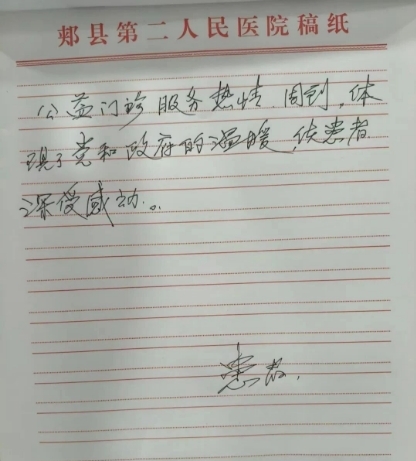 郏县第二人民医院稿纸
公益门诊服务热情周到,体
现了党和政府的温暖,使患者
深受感动。
患者.